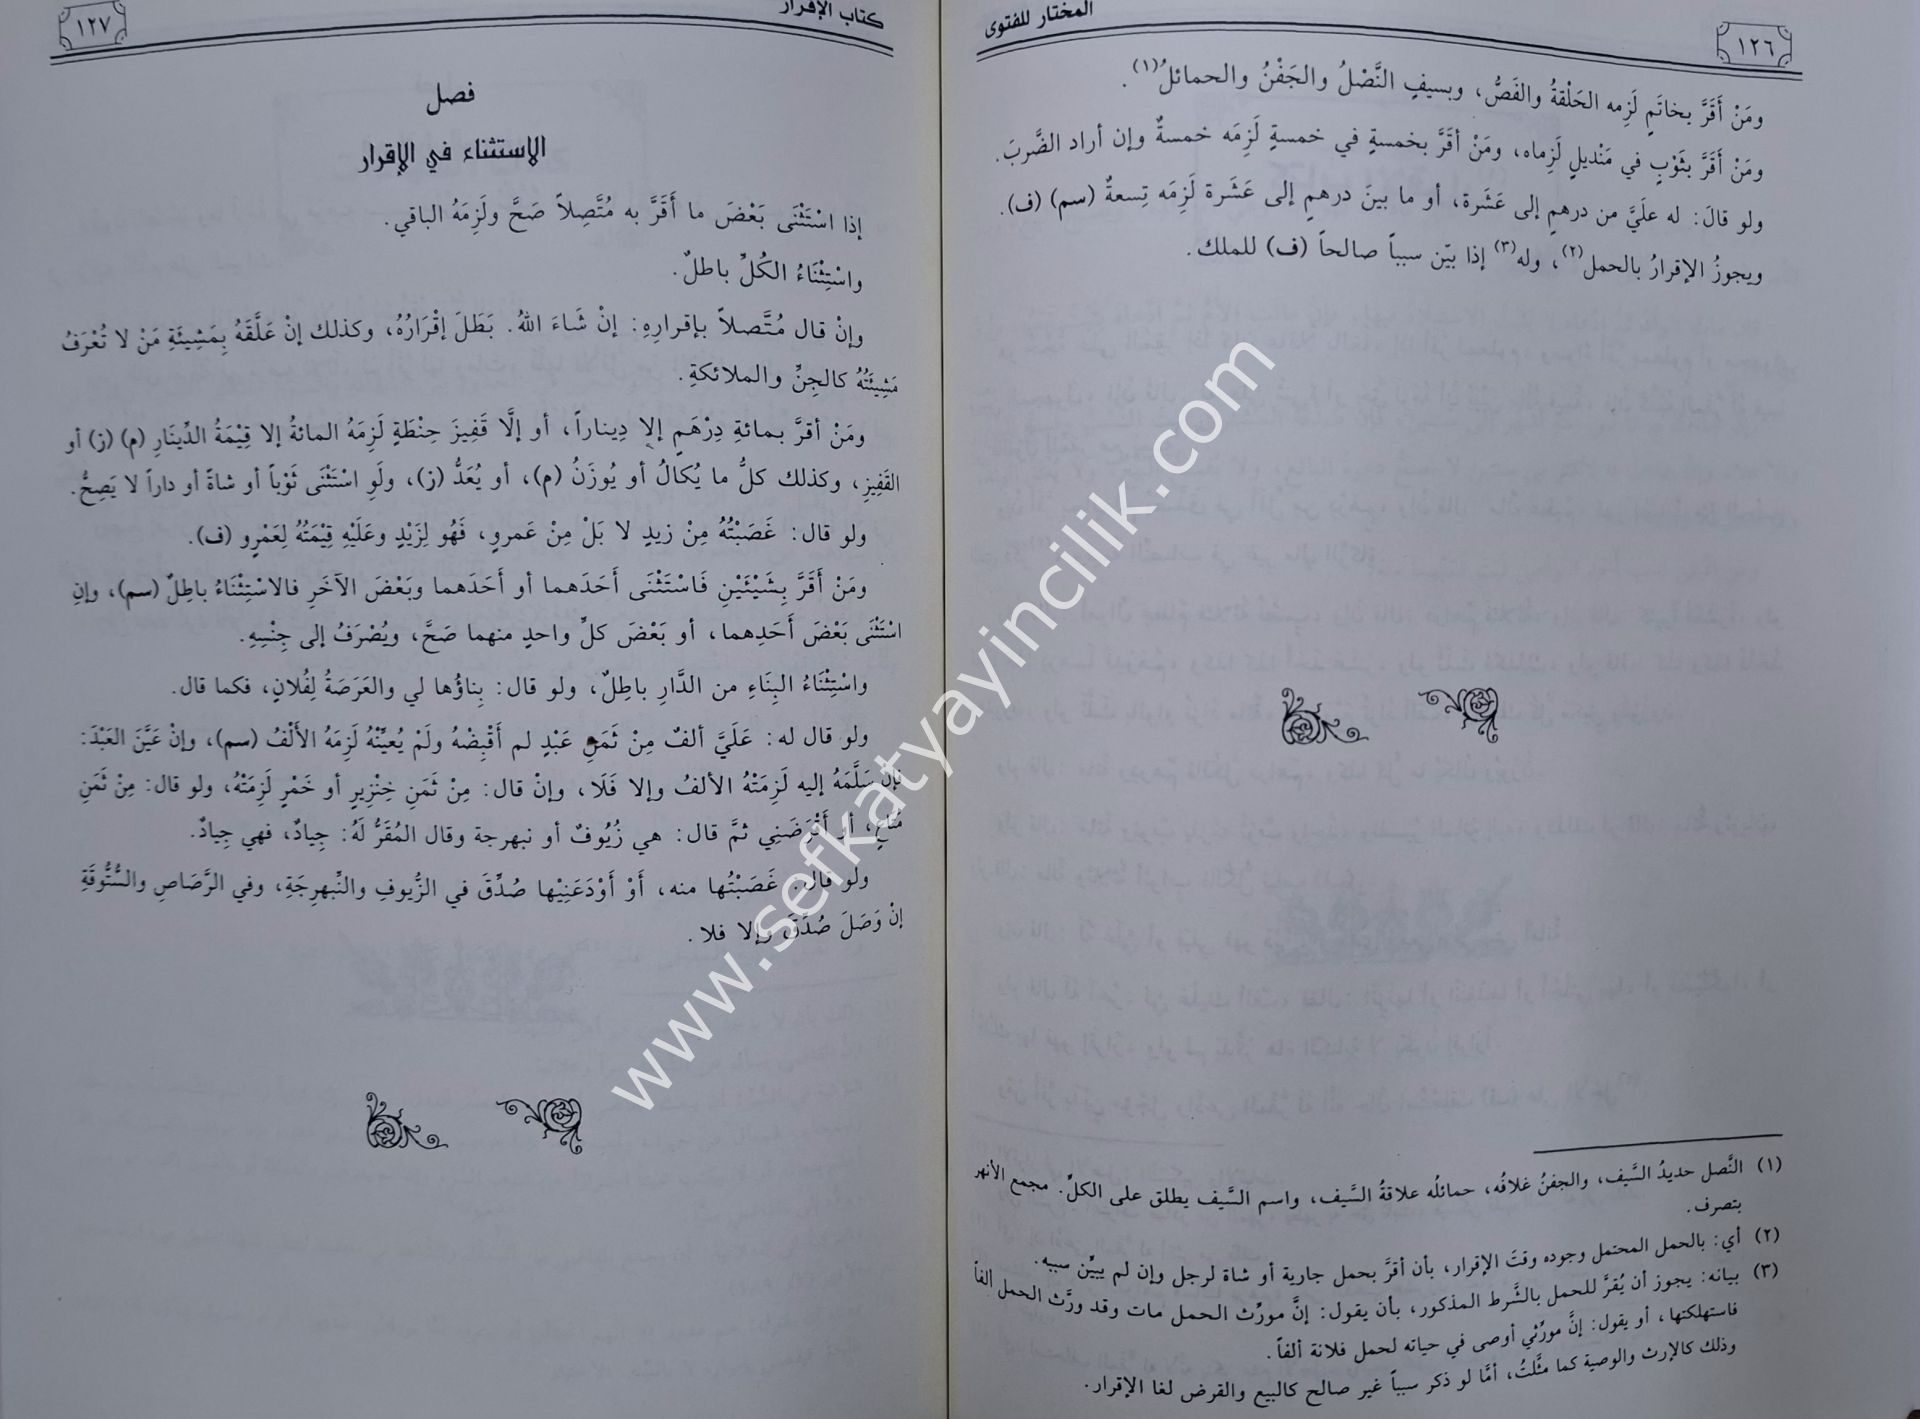 ١٢٦
المختار للفتوى
ومَنْ أَقَرَّ بخاتَمٍ لَزِمه الحَلْقةُ والفَصُّ، وبسيفٍ النَّصْلُ والجَفْنُ والحمائلُ(١).
ومَنْ أَقَرَّ بثَوْبٍ في مَنْديلٍ لَزِماه، ومَنْ أقَرَّ بخمسةٍ في خمسةٍ لَزِمَه خمسةٌ وإن أراد الضَّربَ.
ولو قالَ: له علَيَّ من درهمٍ إلى عَشَرة، أو ما بينَ درهمٍ إلى عَشَرة لَزِمَه تِسعةٌ (سم) (ف).
ويجوزُ الإقرارُ بالحمل(٢)، وله(٣) إذا بيّن سبباً صالحاً (ف) للملك.
(١) النَّصل حديدُ السَّيف، والجفنُ غلافُه، حمائلُه علاقةُ السَّيف، واسم السَّيف يطلق على الكلِّ. مجمع الأنهر
بتصرف.
(٢) أي: بالحمل المحتمل وجوده وقتَ الإقرار، بأن أقرَّ بحمل جارية أو شاة لرجل وإن لم يبيِّن سببه.
(٣) بيانه: يجوز أن يُقرَّ للحمل بالشَّرط المذكور، بأن يقول: إنَّ مورِّث الحمل مات وقد ورَّث الحمل ألفاً
فاستهلكتها، أو يقول: إنَّ مورِّثي أوصى في حياته لحمل فلانة ألفاً.
وذلك كالإرث والوصية كما مثَّلتُ، أمَّا لو ذكر سبباً غير صالح كالبيع والقرض لغا الإقرار.
كتاب الإقرار
١٢٧
فصل
الاستثناء في الإقرار
إذا اسْتَثْنَى بَعْضَ ما أَقَرَّ به مُتَّصِلاً صَحَّ ولَزِمَهُ الباقي.
واسْتِثْنَاءُ الكُلِّ باطلٌ.
وإنْ قال مُتَّصلاً بإقرارِهِ: إنْ شَاءَ اللهُ. بَطَلَ إقْرَارُهُ، وكذلك إنْ عَلَّقَهُ بِمَشِيئَةِ مَنْ لا تُعْرَفُ
مَشِيئَتُهُ كالجِنِّ والملائكةِ.
ومَنْ أقرَّ بمائةِ دِرْهَمٍ إلا دِيناراً، أو إلَّا قَفِيزَ حِنْطَةٍ لَزِمَهُ المائةُ إلا قِيْمَةُ الدِّينَارِ (م) (ز) أو
القَفِيزِ، وكذلك كلُّ ما يُكالُ أو يُوزَنُ (م)، أو يُعَدُّ (ز)، ولَوِ اسْتَثْنَى ثَوْباً أو شاةً أو داراً لا يَصِحُّ.
ولو قال: غَصَبْتُهُ مِنْ زيدٍ لا بَلْ مِنْ عَمروٍ، فَهُو لِزَيْدٍ وعَلَيْهِ قِيْمَتُهُ لِعَمْرٍو (ف).
ومَنْ أَقَرَّ بِشَيْئَيْنِ فَاسْتَثْنَى أَحَدَهما أو أَحَدَهما وبَعْضَ الآخَرِ فالاسْتِثْنَاءُ باطِلٌ (سم)، وإنِ
اسْتَثْنَى بَعْضَ أَحَدِهما، أو بَعْضَ كلِّ واحدٍ منهما صَحَّ، ويُصْرَفُ إلى جِنْسِهِ.
واسْتِثْنَاءُ البِنَاءِ من الدَّارِ باطِلٌ، ولو قال: بِناؤُها لي والعَرَصَةُ لِفُلانٍ، فكما قال.
ولو قال له: عَلَيَّ ألفٌ مِنْ ثَمَنِ عَبْدٍ لم أَقْبِضْهُ ولَمْ يُعيِّنْهُ لَزِمَهُ الألْفُ (سم)، وإنْ عَيَّنَ العَبْدَ:
فإنْ سَلَّمَهُ إليه لَزِمَتْهُ الألفُ وإلا فَلَا، وإنْ قال: مِنْ ثَمَنِ خِنْزِيرٍ أو خَمْرٍ لَزِمَتْهُ، ولو قال: مِنْ ثَمَنِ
مَتَاعٍ، أو أَقْرَضَنِي ثمَّ قال: هي زُيُوفٌ أو نبهرجة وقال المُقَرُّ لَهُ: جِيادٌ، فهي جِيادٌ.
ولو قال: غَصَبْتُها منه، أَوْ أَوْدَعَنِيْها صُدِّقَ في الزُّيوفِ والنَّبهرِجَةِ، وفي الرَّصَاصِ والسَّتُّوقَةِ
إنْ وَصَلَ صُدِّقَ وإلا فلا.
www.sefkatyayincilik.com